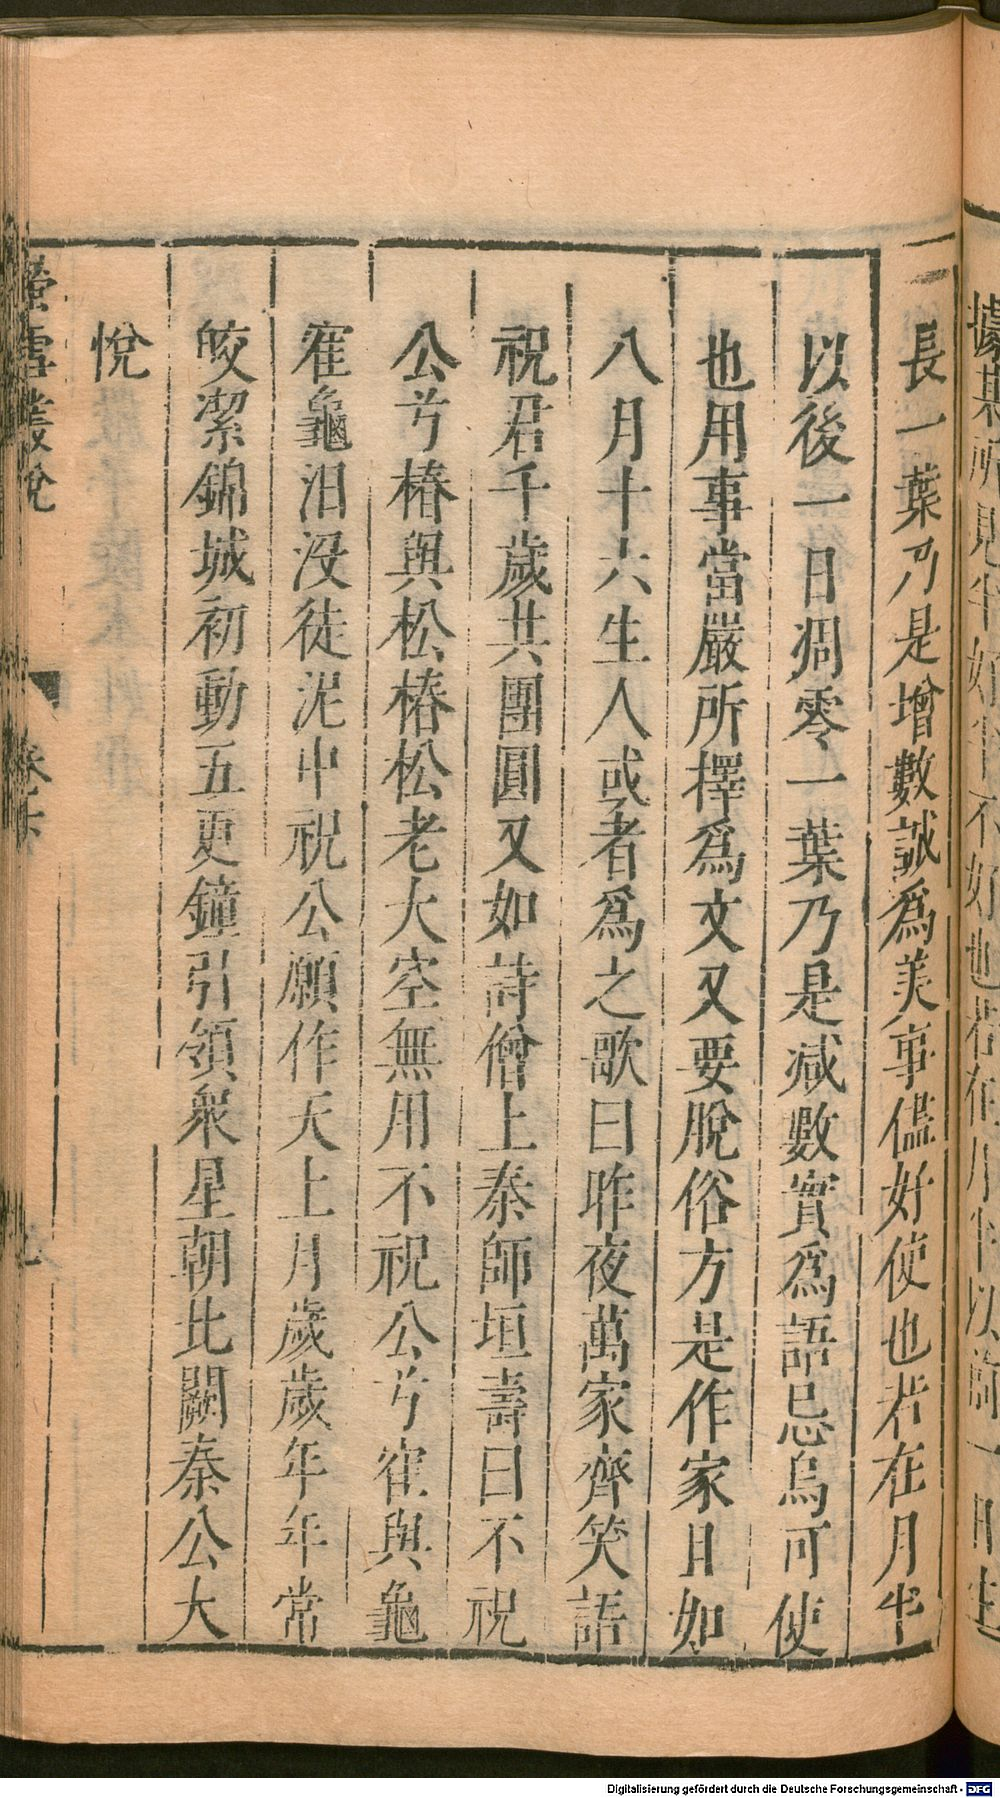 據其所見半好半不好也若在月半以前一日生
長一葉乃是增數誠爲美事儘好使也若在月半
以後一日凋零一葉乃是减數實爲語忌烏可使
也用事當嚴所擇爲文又要脫俗方是作家且如
八月十六生人或者爲之歌曰昨夜萬家齊笑語
祝君千歲共團圓又如詩僧上秦師垣壽曰不祝
公兮椿與松椿松老大空無用不祝公兮寉與龜
寉龜汨没徒泥中祝公願作天上月歲歲年年常
皎潔錦城初動五更鐘引領衆星朝北闕秦公大
悅
螢雪叢說
卷下
Digitalisierung gefördert durch die Deutsche Forschungsgemeinschaft - DFG